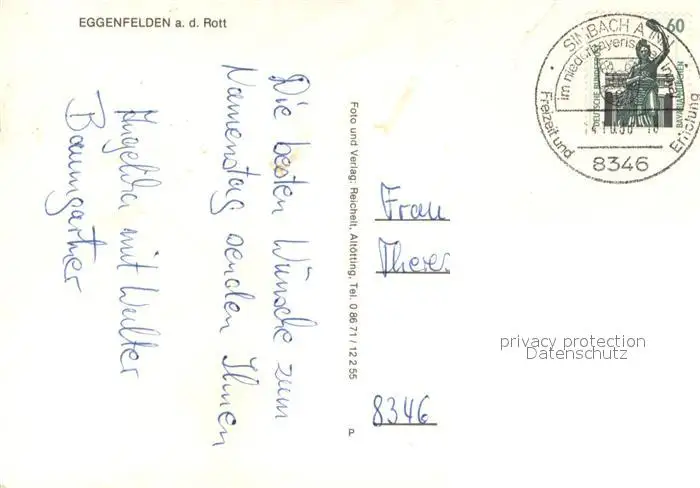 EGGENFELDEN a. d. Rott
Die besten Wünsche zum
Namenstag senden Ihnen
Angelika mit Walter
Baumgartner
Foto und Verlag: Reichelt, Altötting, Tel. 0 86 71 / 12 2 55
P
60
DEUTSCHE BUNDES
BAVARIA MÜNCHEN
SIMBACH A INN
im niederbayerischen
Freizeit und Erholung
8346
Frau
Theres
8346
privacy protection
Datenschutz